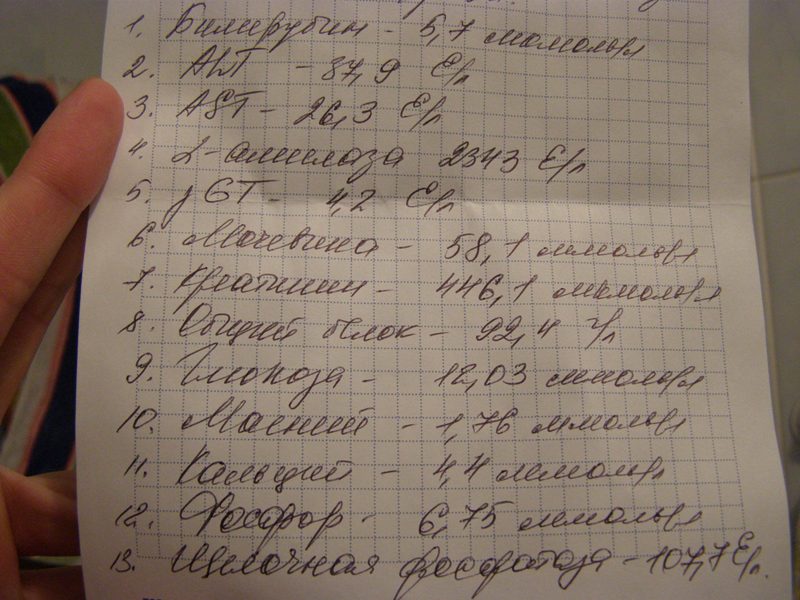 1. Билирубин - 5,7 мкмоль/л
2. ALT - 37,9 Е/л
3. AST - 26,3 Е/л
4. α-амилаза 2343 Е/л
5. γGT - 4,2 Е/л
6. Мочевина - 58,1 ммоль/л
7. Креатинин - 446,1 мкмоль/л
8. Общий белок - 92,4 г/л
9. Глюкоза - 12,03 ммоль/л
10. Магний - 1,76 ммоль/л
11. Кальций - 4,4 ммоль/л
12. Фосфор - 6,75 ммоль/л
13. Щелочная фосфотаза - 107,7 Е/л.